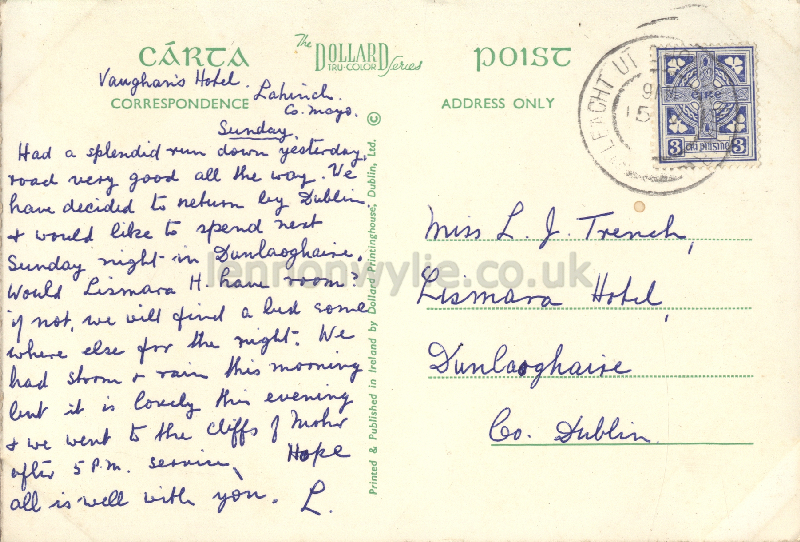 CÁRTA
The DOLLARD
TRU-COLOR Series
POIST
CORRESPONDENCE
ADDRESS ONLY
Vaughan's Hotel.
Lahinch.
Co. Mayo.
Sunday.
Had a splendid run down yesterday,
road very good all the way. We
have decided to return by Dublin,
& would like to spend next
Sunday night in Dunlaoghaire.
Would Lismara H. have room?
if not, we will find a bed some
where else for the night. We
had storm & rain this morning
but it is lovely this evening
& we went to the Cliffs of Mohr
after 5 P.m. service, Hope
all is well with you. L.
Printed & Published in Ireland by Dollard Printinghouse, Dublin, Ltd. ©
LEACHT UI
15
éire
3 trí pinginí 3
Miss L. J. Trench,
Lismara Hotel,
Dunlaoghaire
Co. Dublin.
lennonwylie.co.uk